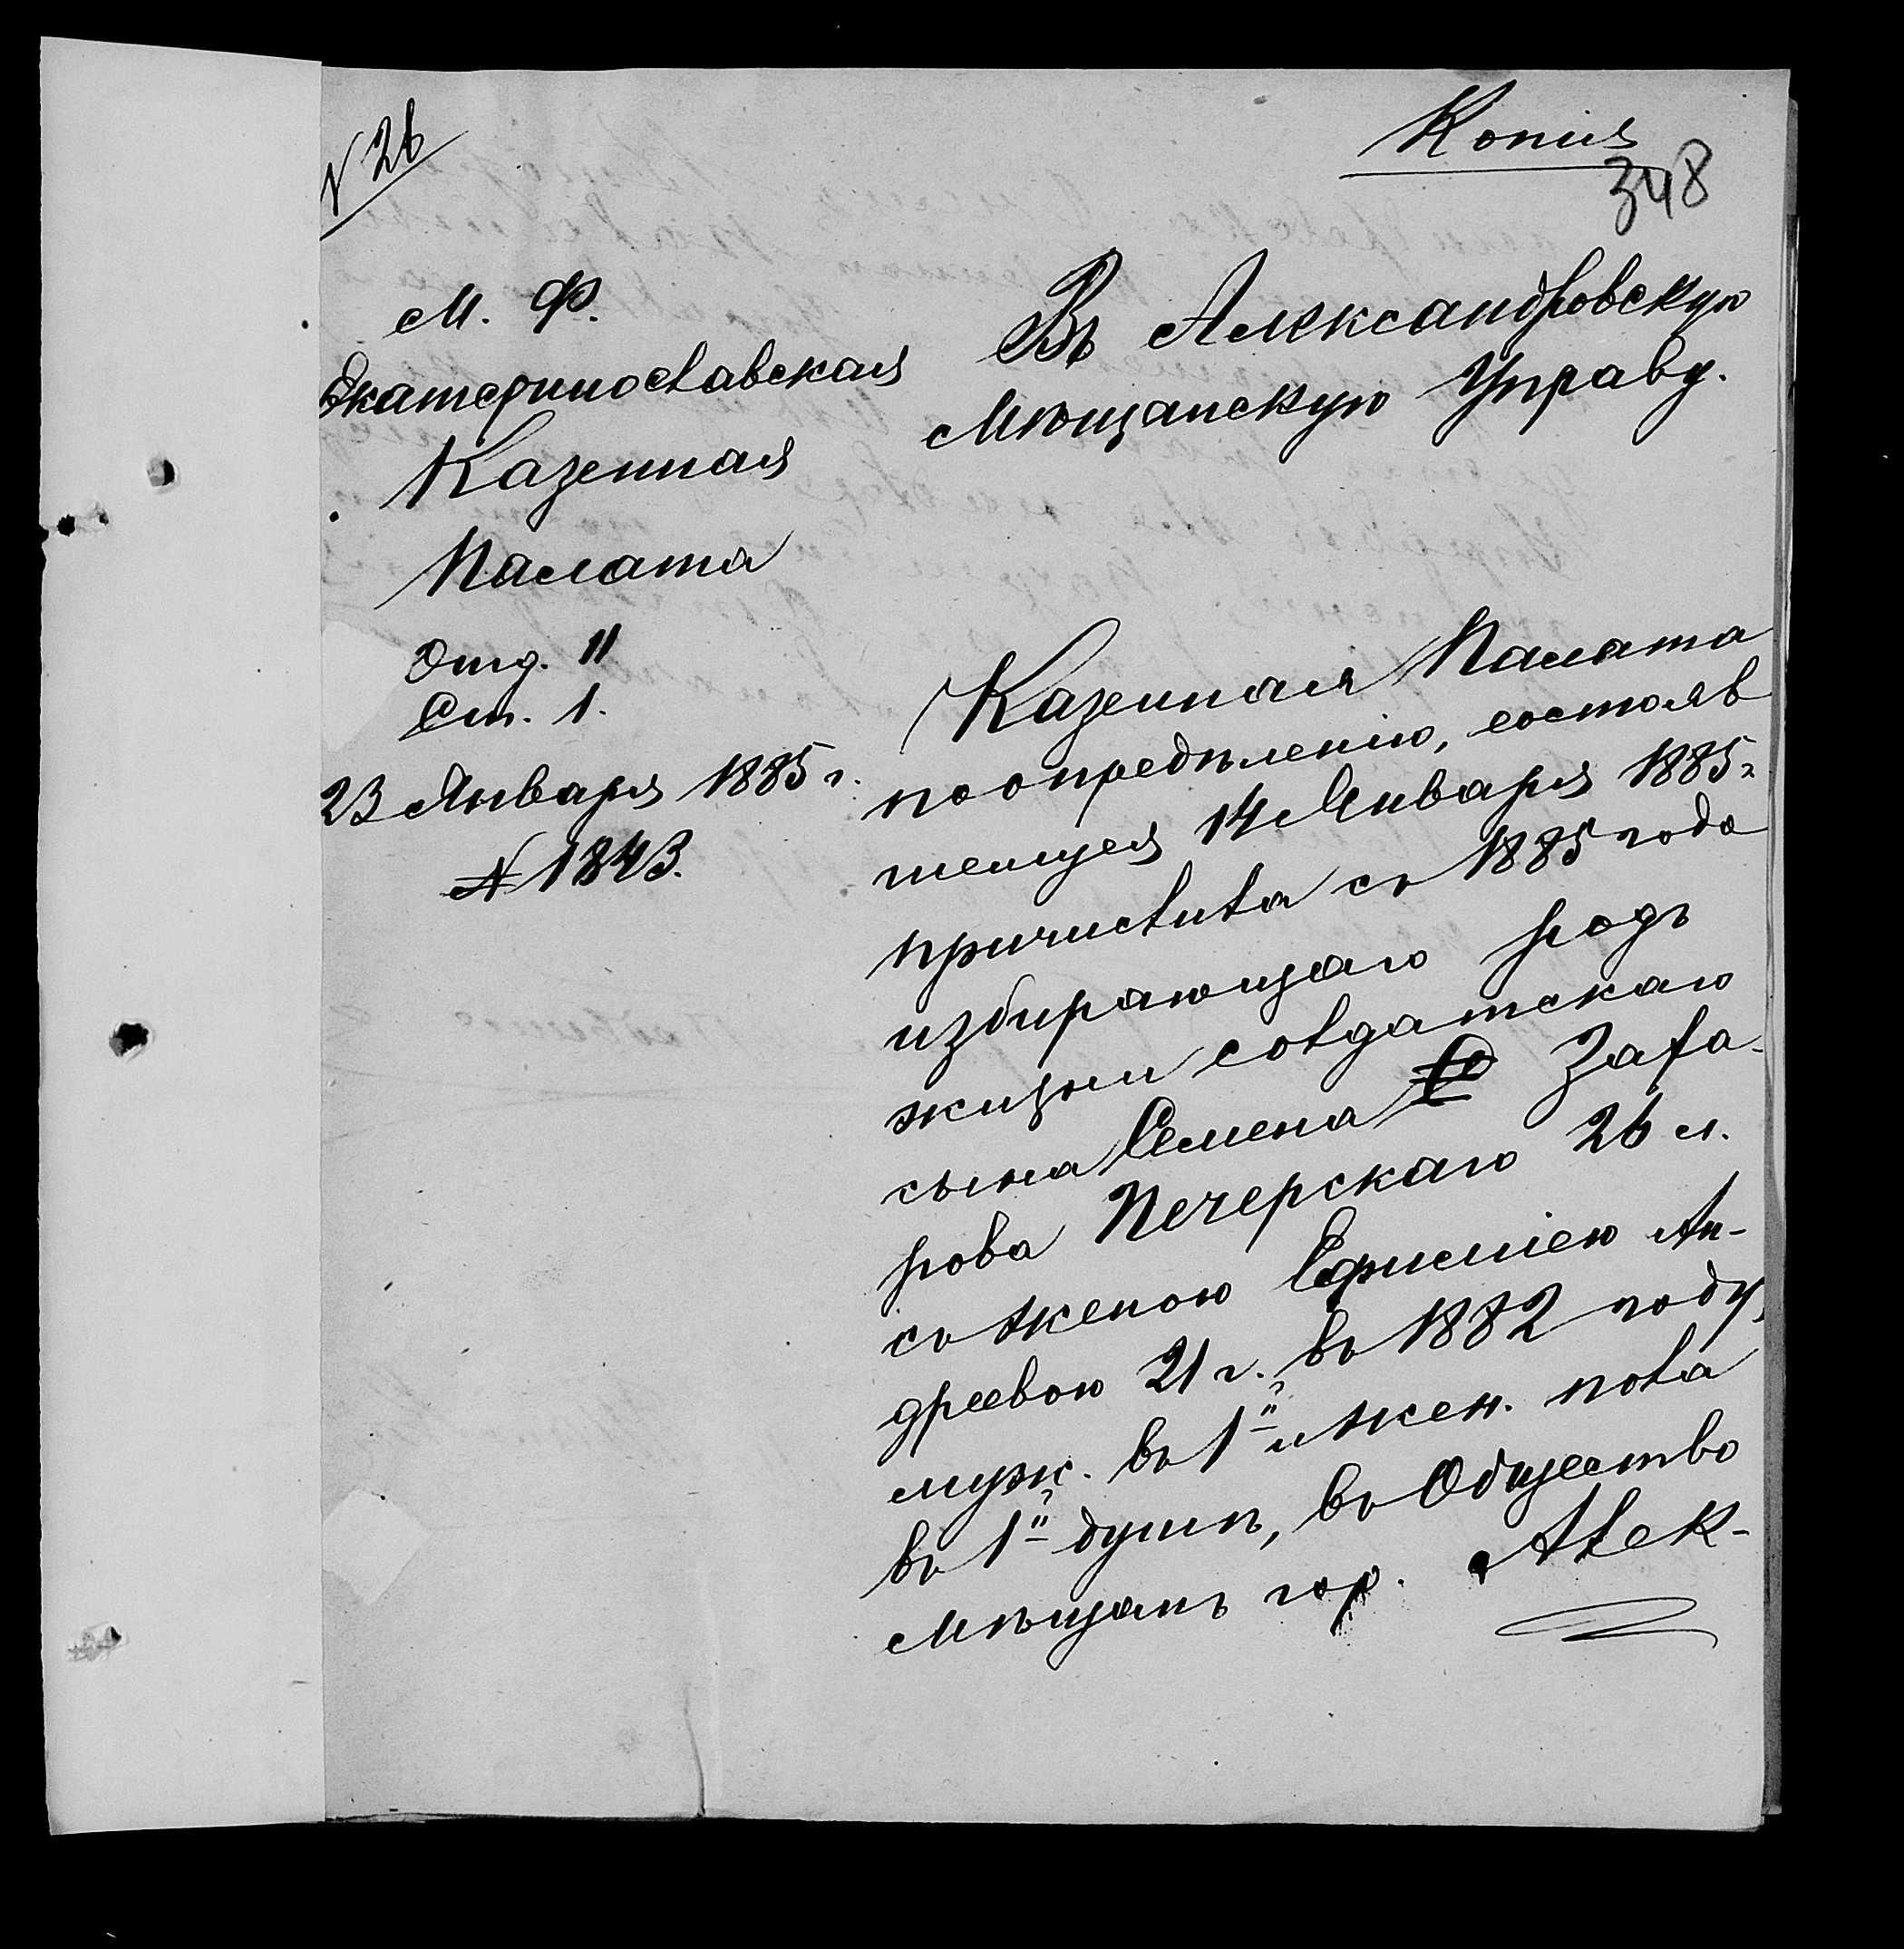 N 26
Копия
348
М. Ф.
Екатеринославская
Казенная
Палата
Отд. II
Ст. 1.
23 Января 1885 г.
№ 1843.
Въ Александровскую
Мѣщанскую Управу.
Казенная Палата
по опредѣленію, состояв
шемуся 14 Января 1885 г
причислила съ 1885 года
избирающаго родъ
жизни солдатскаго
сына Семена Заха-
рова Печерскаго 26 л.
съ женою Ефиміею Ан-
дреевою 21 г. въ 1882 году,
муж. въ 1й и жен. пола
въ 1й душѣ, въ Общество
мѣщанъ гор. Алек-